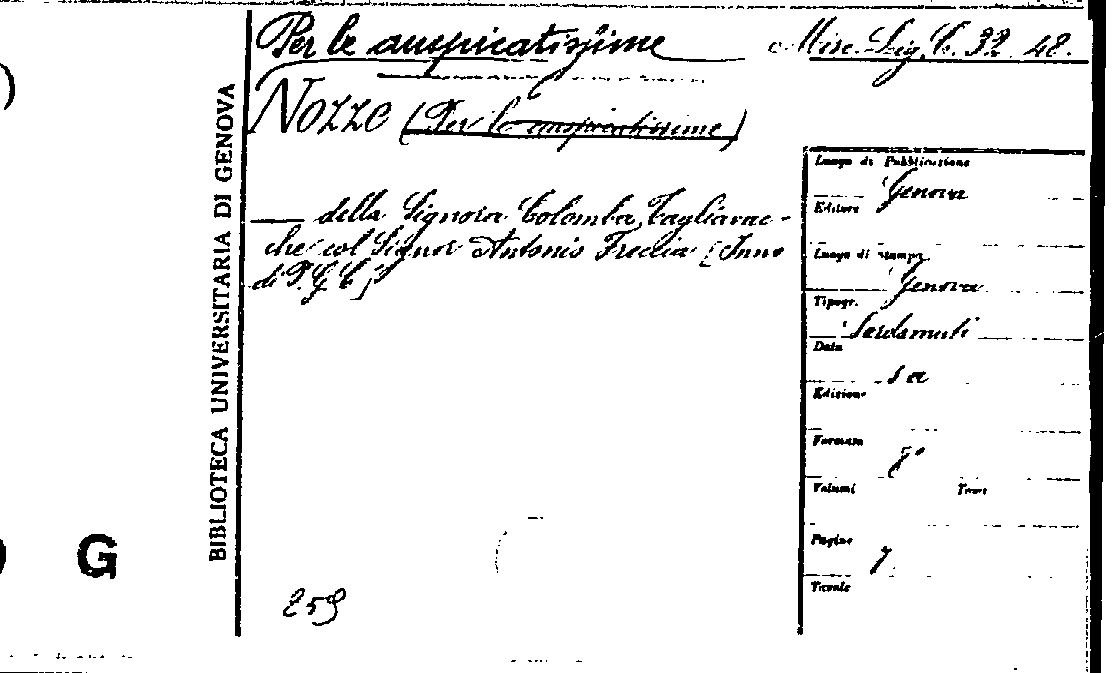 Per le auspicatissime
Misc. Lig. C. 32. 48.
NOZZE (Per le auspicatissime)
BIBLIOTECA UNIVERSITARIA DI GENOVA
— della Signora Colomba Tagliavac-
che col Signor Antonio Freccia [Inno
di P. G. C.]
Luogo di Pubblicazione
Genova
Editore
Luogo di stampa
Genova
Tipogr.
Data
s a
Edizione
Formato
8°
Volumi Tomi
Pagine
7
Tavole
259
G